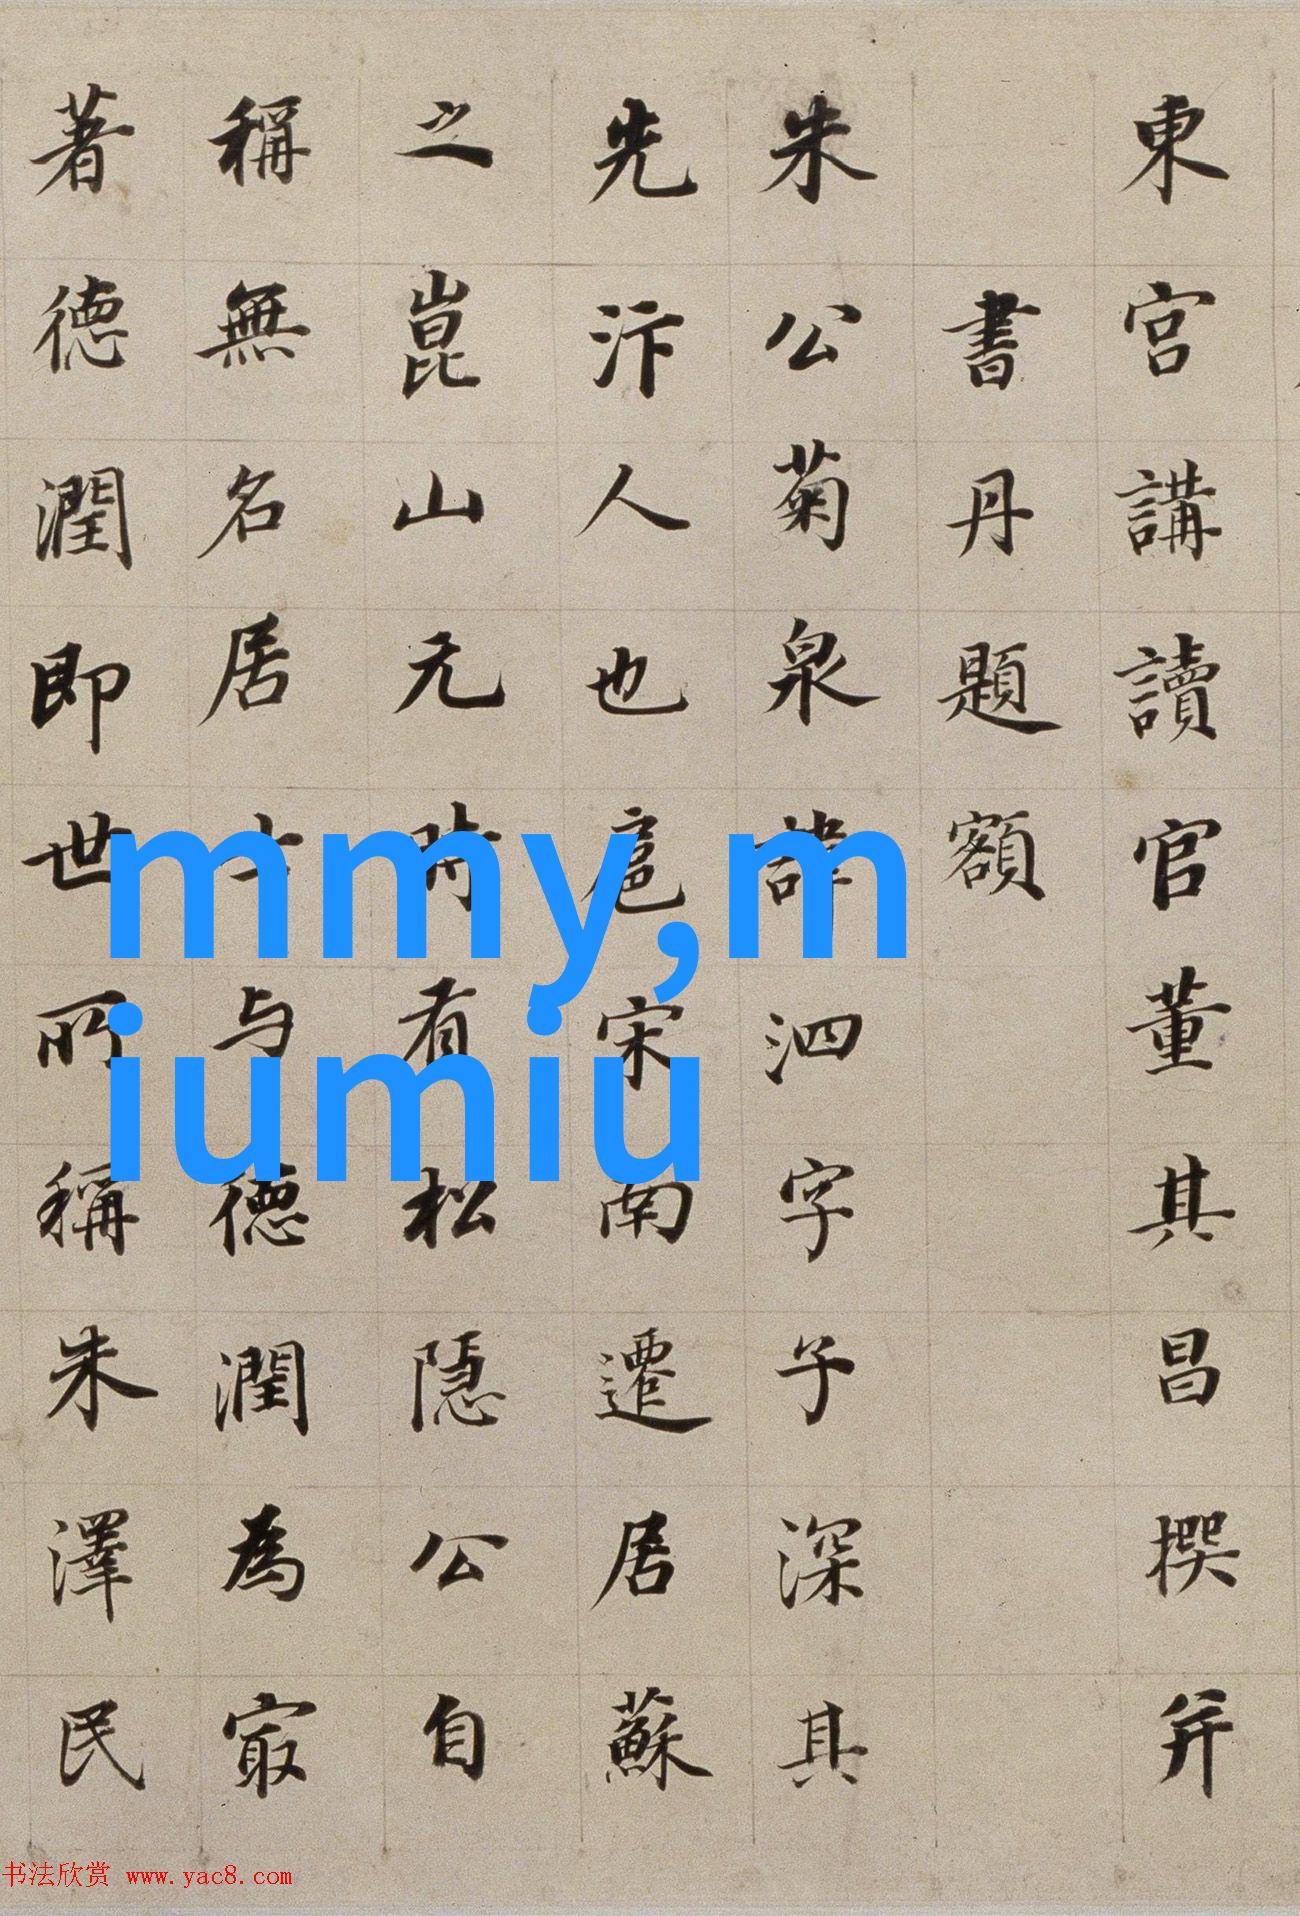 東宮講讀官董其昌撰并
書丹題額
朱公菊泉諱泗字子深其
先汴人也扈宋南遷居蘇
之崑山元時有松隱公自
稱無名居士与德潤為寂
著德潤即世所稱朱澤民
mmy,m
iumiu
书法欣赏 www.yac8.com